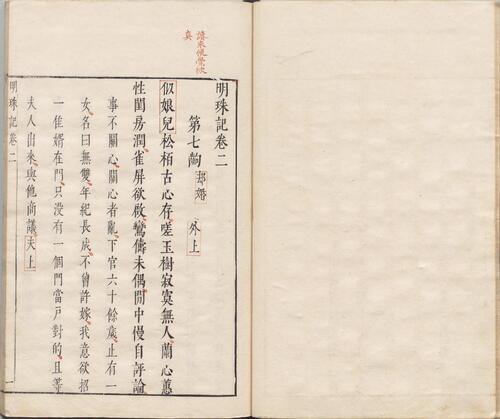 讀來恍覺欲
真
明珠記卷二
第七齣 却婚 外上
似娘兒松栢古心存嗟玉樹寂寞無人蘭心蕙
性閨房潤雀屏欲啟鸞儔未偶閒中慢自評論
事不關心關心者亂下官六十餘歲止有一
女名曰無雙年紀長成不曾許嫁我意欲招
一隹婿在門只没有一個門當戶對的且等
夫人出來與他商議夫上
明珠記卷二
一